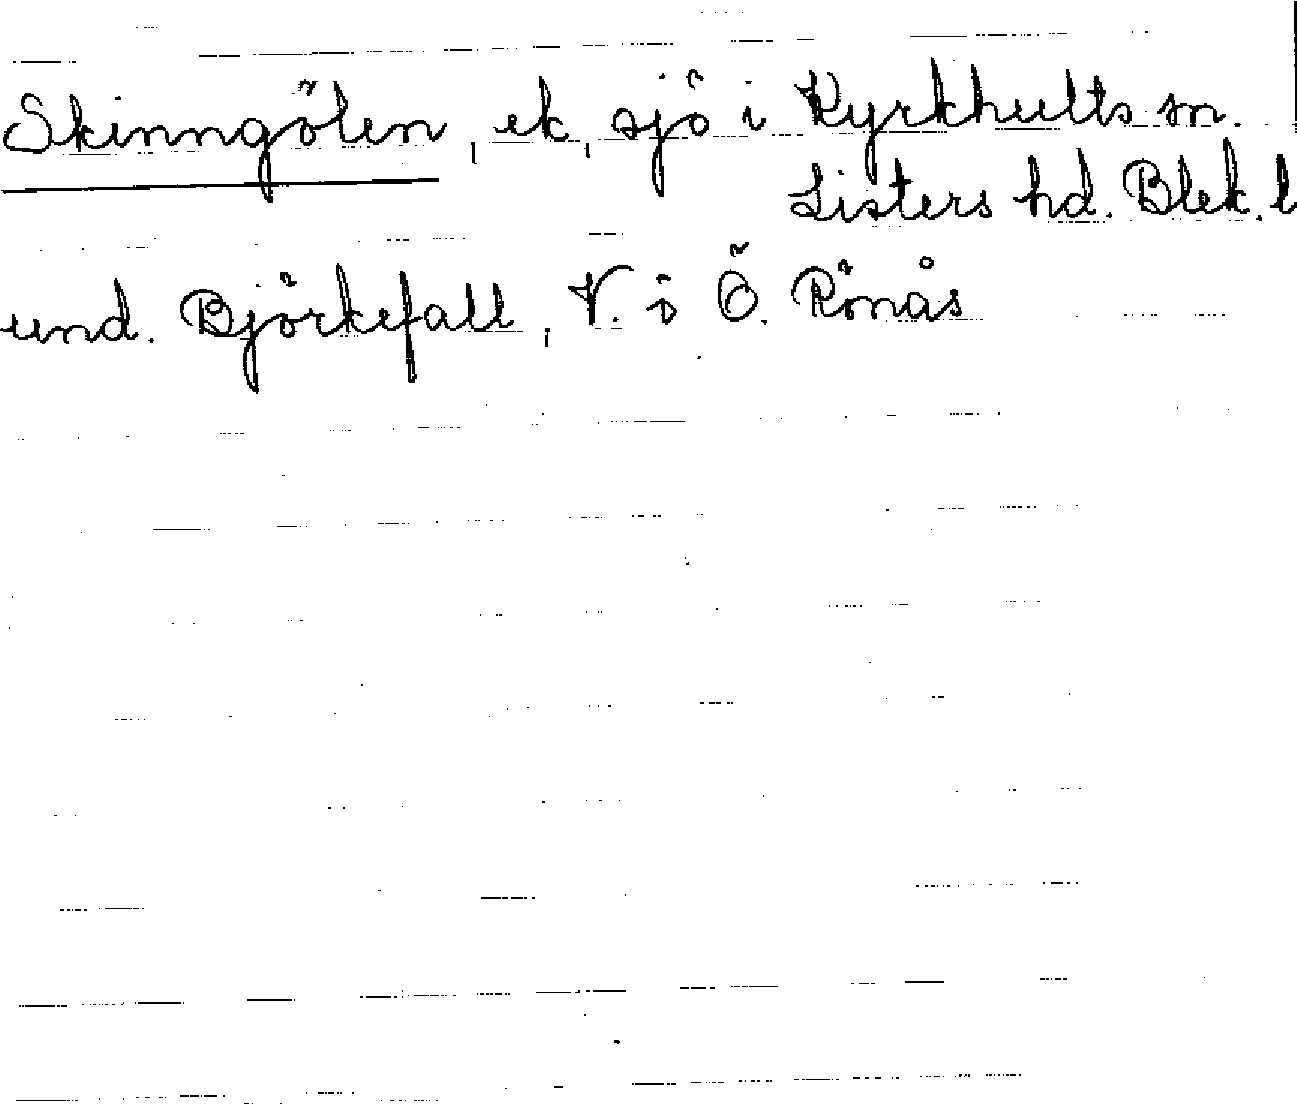 Skinngölen, ek, sjö i Kyrkhults sn.
Listers hd. Blek. l
und. Björkefall, V. o Ö. Rönås